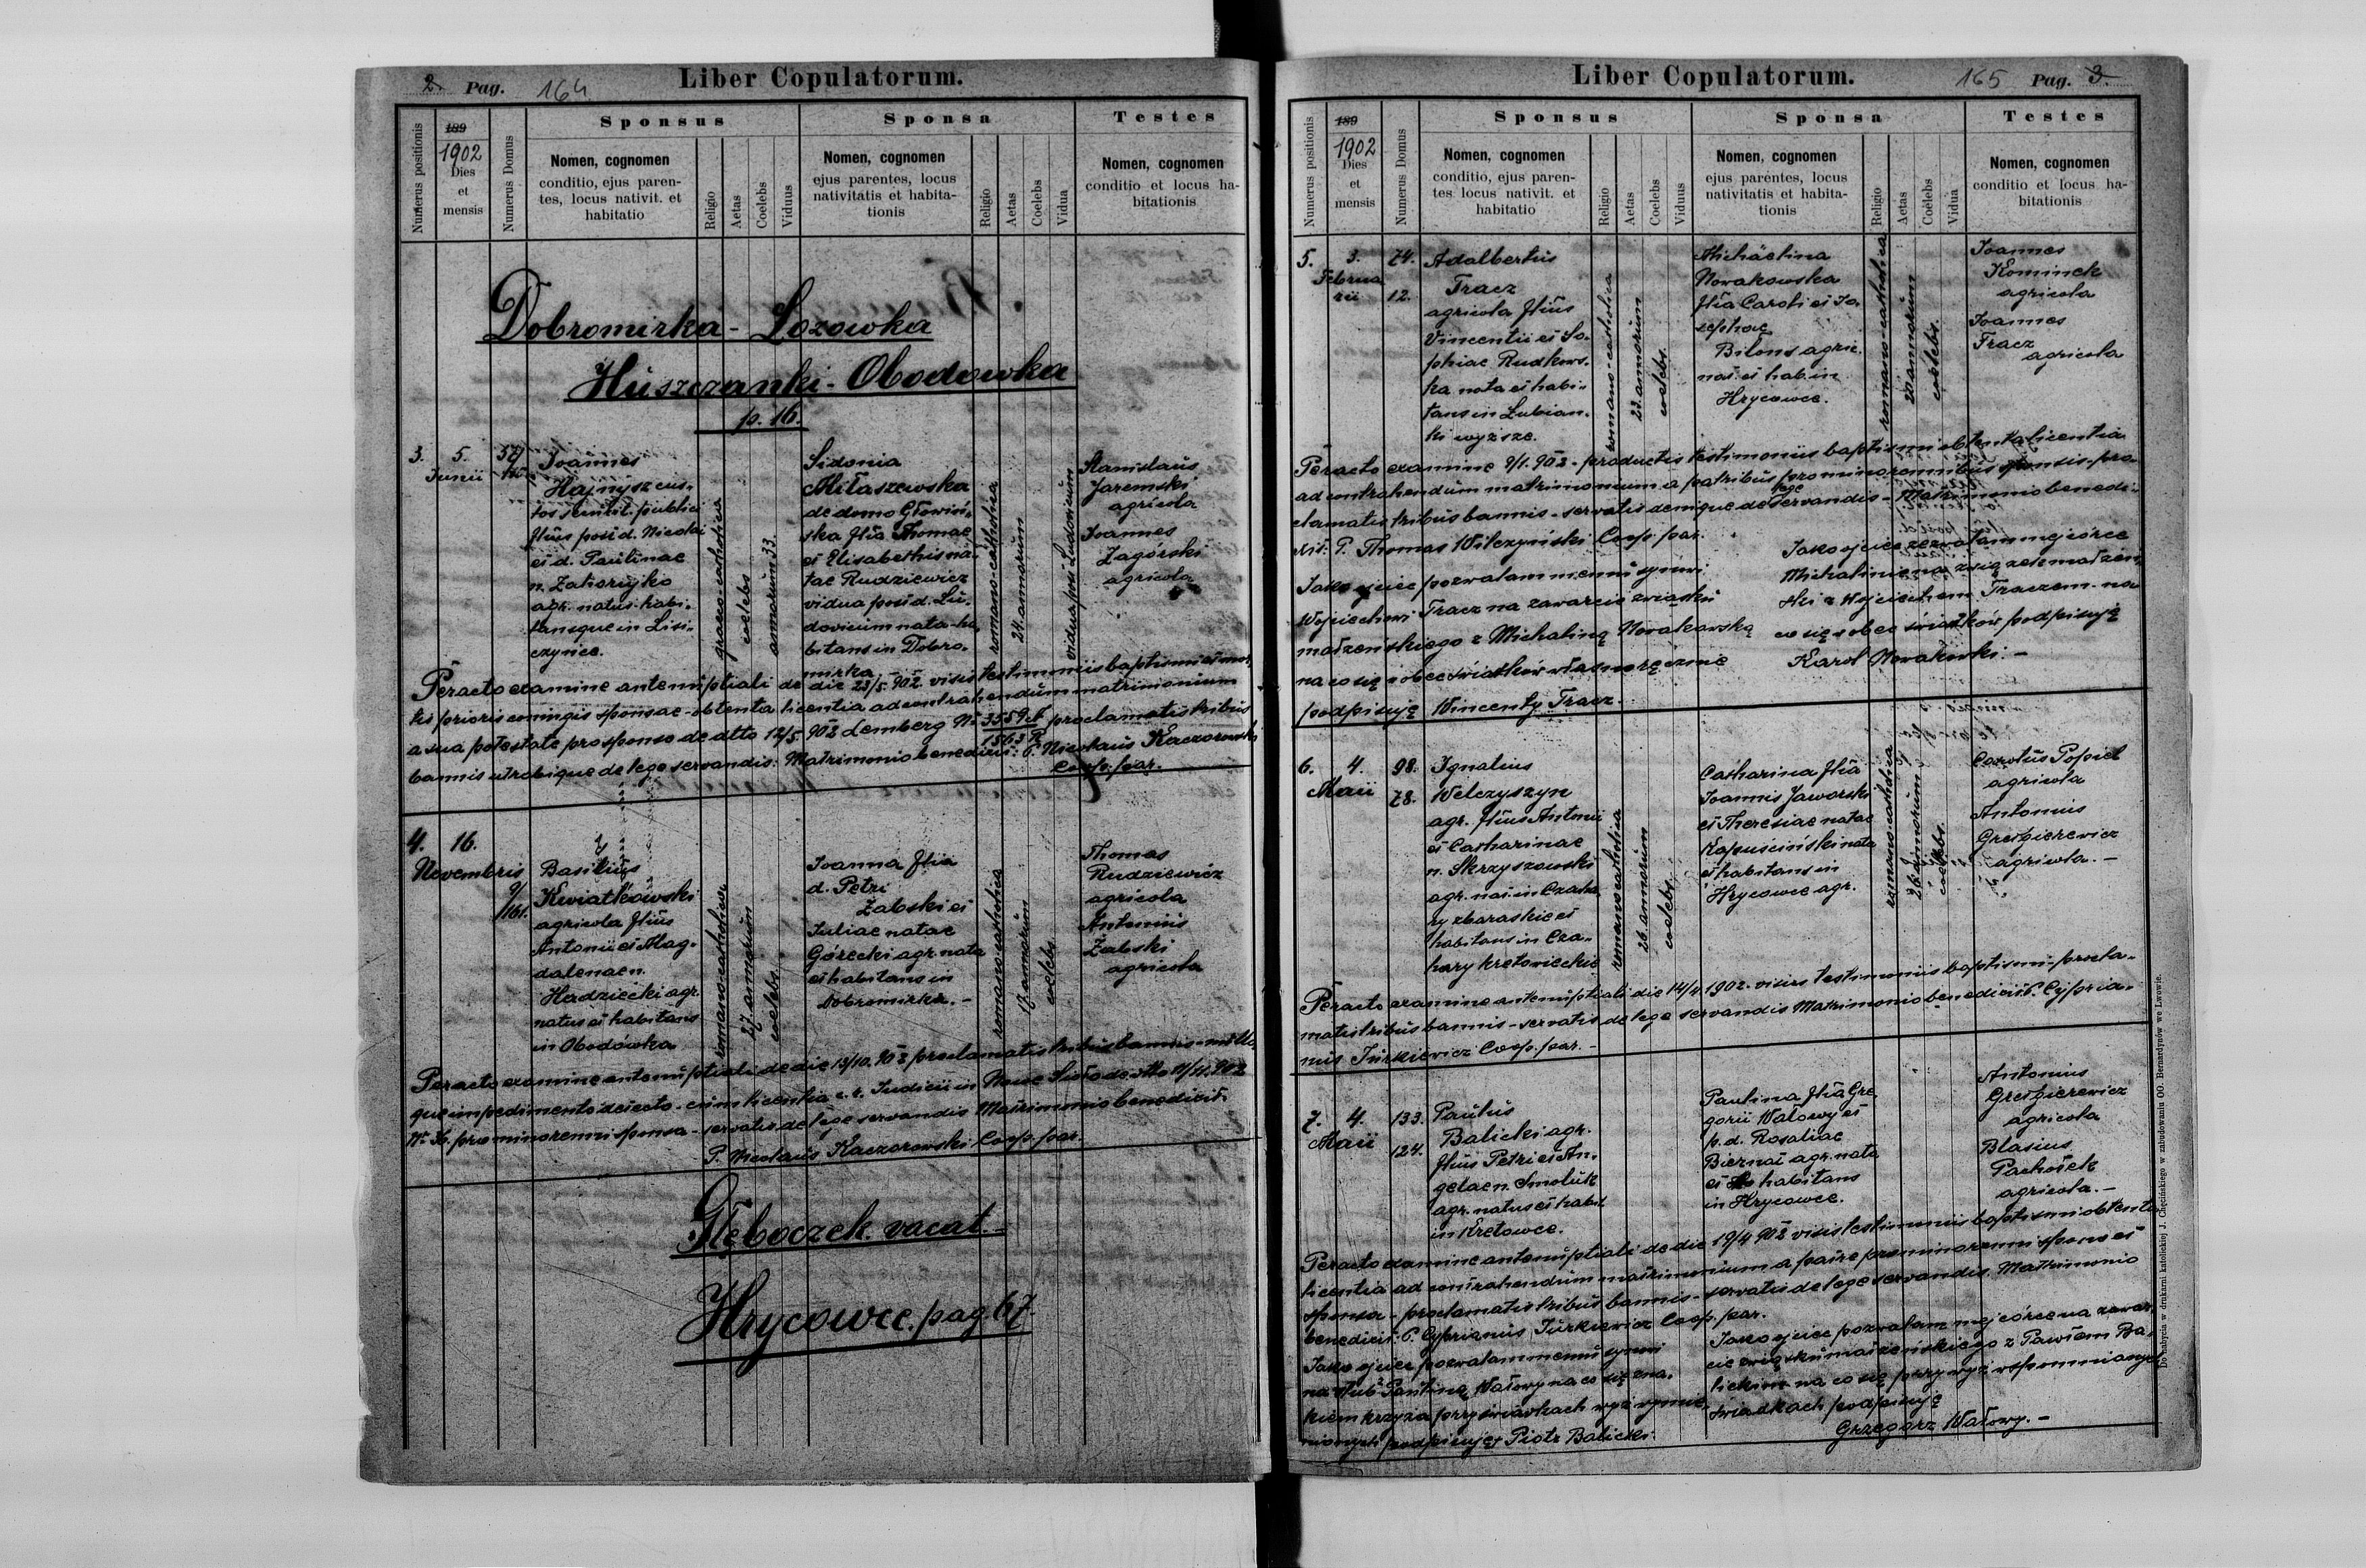 2. Pag. 164 Liber Copulatorum.
Numerus positionis
189
1902
Dies
et
mensis
Numerus Domus
Sponsus
Nomen, cognomen
conditio, ejus paren-
tes, locus nativit. et
habitatio
Religio
Aetas
Coelebs
Viduus
Sponsa
Nomen, cognomen
ejus parentes, locus
nativitatis et habita-
tionis
Religio
Aetas
Coelebs
Vidua
Testes
Nomen, cognomen
conditio et locus ha-
bitationis
Dobromirka - Lozowka
Huszczanki - Obodowka
p. 16.
3.
5.
Junii
Joannes
Hajnysz cus-
filius post d. Nicolai
et d. Paulinae
n. Zahorijko
agr. natus habi-
tansque in Lisi-
czynce.
graeco-catholica
coelebs
annorum 33.
Sidonia
Miłaszewska
de domo Głowiń-
ska filia Thomae
et Elisabethis na-
tae Rudziewicz
vidua post d. Lu-
dovicum nata-ha-
bitans in Dobro-
mirka
romano-catholica
24. annorum
vidua post Ludovicum
Stanislaus
Jaremski
agricola
Joannes
Zagórski
agricola
Peracto examine antenuptiali de die 23/5 902. visis testimoniis baptismi et mor-
tis prioris coniugis sponsae - obtenta licentia ad contrahendum matrimonium
a sua potestate pro sponso de dtto 12/5 902 Lemberg Nr 3559 proclamatis tribus
1563
bannis utrobique de lege servandis: Matrimonio benedixit: P. Nicolaus Kaczorowski
Coop. par.
4.
16.
Novembris
9/
161.
Basilius
Kwiatkowski
agricola filius
Antonii et Mag-
dalenae n.
Hadziecki agr.
natus et habitans
in Obodówka
romano-catholica
27. annorum
coelebs.
Joanna filia
d. Petri
Żabski et
Juliae natae
Górecki agr. nata
et habitans in
Dobromirka. -
romano-catholica
17. annorum
coelebs
Thomas
Rudziewicz
agricola
Antonius
Żabski
agricola
Peracto examine antenuptiali de die 13/10. 902 proclamatis tribus bannis - nullo
que impedimento detecto - cum licentia c. r. Judicii in Nowe Sioło de dtto 11/11. 902
pro minorenni sponsa - servatis de lege servandis Matrimonio benedixit.
P. Nicolaus Kaczorowski Coop. par.
Głęboczek vacat. -
Hrycowce. pag. 67.
Liber Copulatorum. 165 Pag. 3.
Numerus positionis
189
1902
Dies
et
mensis
Numerus Domus
Sponsus
Nomen, cognomen
conditio, ejus paren-
tes locus nativit. et
habitatio
Religio
Aetas
Coelebs
Viduus
Sponsa
Nomen, cognomen
ejus parentes, locus
nativitatis et habita-
tionis
Religio
Aetas
Coelebs
Vidua
Testes
Nomen, cognomen
conditio et locus ha-
bitationis
5.
3.
Februa
rii
74.
12.
Adalbertus
Tracz
agricola filius
Vincentii et So-
phiae Rudkows-
ka nota et habi-
tans in Lubian-
ki wyższe.
romano-catholica
23. annorum
coelebs.
Michäelina
Nowakowska
filia Caroli et Jo-
sephae
Bilons agric.
nat. et hab. in
Hrycowce.
romano-catholica
coelebs.
Joannes
Kominek
agricola
Joannes
Tracz
agricola
Peracto examine 9/1. 902 - productis testimoniis baptismi obtenta licentia
ad contrahendum matrimonium a patribus pro minorennibus sponsis - pro-
clamatis tribus bannis - servatis denique de lege servandis - Matrimonio benedi-
xit: P. Thomas Wilczyński Coop. par.
Jako ojciec pozwalam memu synowi
Wojciechowi Tracz na zawarcie związku
małżeńskiego z Michaliną Nowakowską
na co się wobec świadków własnoręcznie
podpisuję Wincenty Tracz.
Jako ojciec zezwalam mej córce
Michalinie na związek małżeń-
ski z Wojciechem Traczem - na
co się wobec świadków podpisuję
Karol Nowakowski. -
6.
4.
Maii
98.
78.
Ignatius
Welczyszyn
agr. filius Antonii
et Catharinae
n. Skrzyszowski
agr. nat. in Czaha-
ry zbaraskie et
habitans in Cza-
hary kretowieckie
romano catholica
26. annorum
coelebs.
Catharina filia
Joannis Jaworski
et Theresiae natae
Kapuscinski nata
et habitans in
Hrycowce agr.
romano catholica
26 annorum
coelebs.
Carolus Popiel
agricola
Antonius
Greskierewicz
agricola. -
Peracto examine antenuptiali die 14/4 1902. visis testimoniis baptismi - procla-
matis tribus bannis - servatis de lege servandis Matrimonio benedixit P. Cypria-
nus Jurkiewicz Coop. par. -
7.
4.
Maii
133.
124.
Paulus
Balicki agr.
filius Petri et An-
gelae n. Smoluk
agr. natus et habit
in Kretowce.
Paulina filia Gre
gorii Wałowy et
p. d. Rosaliae
Biernat agr. nata
et habitans
in Hrycowce.
Antonius
Greskierewicz
agricola
Blasius
Pachołek
agricola. -
Peracto examine antenuptiali de die 19/4 902 visis testimoniis baptismi obtenta
licentia ad contrahendum matrimonium a patre pro minorenni sponso et
sponsa - proclamatis tribus bannis - servatis de lege servandis. Matrimonio
benedixit: P. Cyprianus Jurkiewicz Coop. par.
Jako ojciec pozwalam memu synowi
na ślub z Pauliną Wałowy na co się zna-
kiem krzyża przy świadkach wyż wymie-
nionych podpisuję + Piotr Balicki.
Jako ojciec pozwalam mej córce na zawar-
cie związku małżeńskiego z Pawłem Ba-
lickim na co się przy wyż wspomnianych
świadkach podpisuję
Grzegorz Wałowy. -
Do nabycia w drukarni katolickiej J. Chęcińskiego w zabudowaniu OO. Bernardynów we Lwowie.